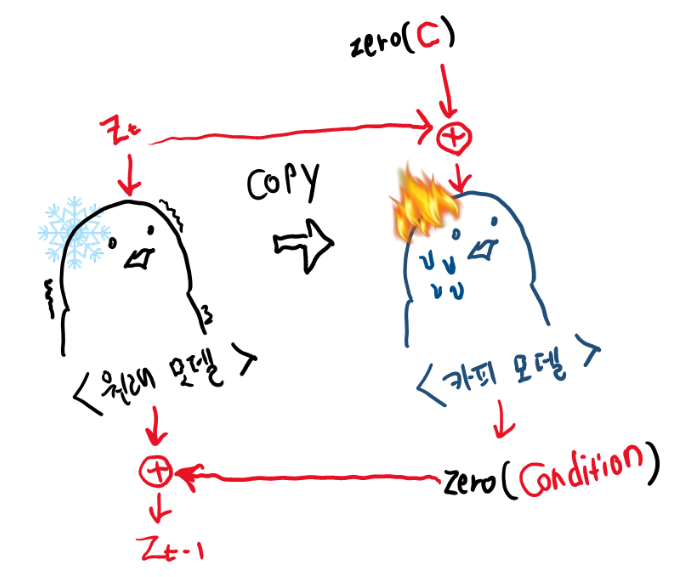 zero(C)
Zt
COPY
<원래 모델>
<카피 모델>
zero(Condition)
Zt-1